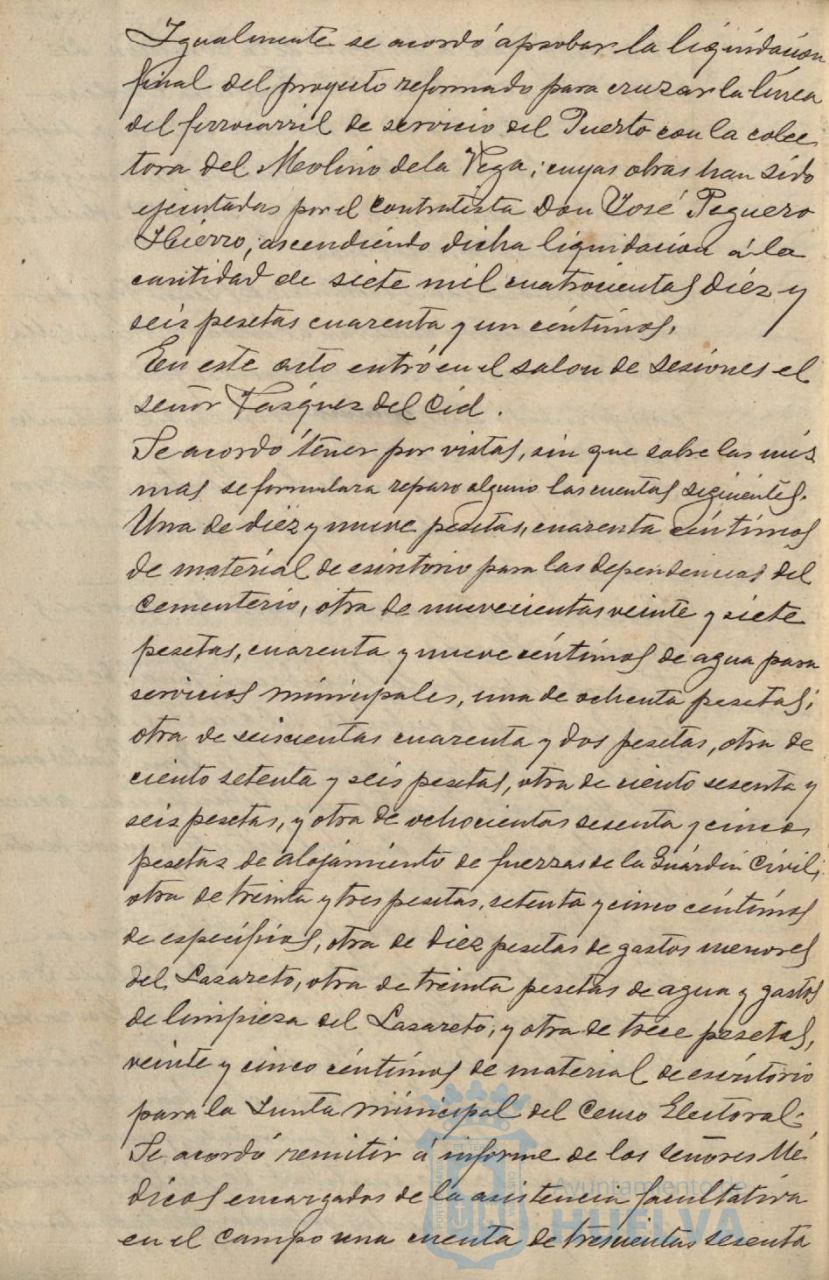 Igualmente se acordó aprobar la liquidacion
final del proyecto reformado para cruzar la linea
del ferrocarril de servicio del Puerto con la colec
tora del Molino de la Vega; cuyas obras han sido
ejecutadas por el contratista Don José Peguero
Hierro, ascendiendo dicha liquidacion á la
cantidad de siete mil cuatrocientas diéz y
seis pesetas cuarenta y un céntimos.
En este acto entró en el salon de sesiones el
señor Vazquez del Cid.
Se acordó tener por vistas, sin que sobre las mis
mas se formulara reparo alguno las cuentas siguientes.
Una de diéz y nueve pesetas, cuarenta céntimos
de material de escritorio para las dependencias del
Cementerio, otra de nuevecientas veinte y siete
pesetas, cuarenta y nueve céntimos de agua para
servicios municipales, una de ochenta pesetas;
otra de seiscientas cuarenta y dos pesetas, otra de
ciento setenta y seis pesetas, otra de ciento sesenta y
seis pesetas, y otra de ochocientas sesenta y cinco
pesetas de alojamiento de fuerzas de la Guardia Civil;
otra de treinta y tres pesetas, setenta y cinco céntimos
de especificos, otra de diez pesetas de gastos menores
del Lazareto, otra de treinta pesetas de agua y gastos
de limpieza del Lazareto, y otra de trece pesetas,
veinte y cinco céntimos de material de escritorio
para la Junta municipal del Censo Electoral.
Se acordó remitir á informe de los señores Mé
dicos encargados de la asistencia facultativa
en el campo una cuenta de trescientas sesenta
Ayuntamiento de
HUELVA